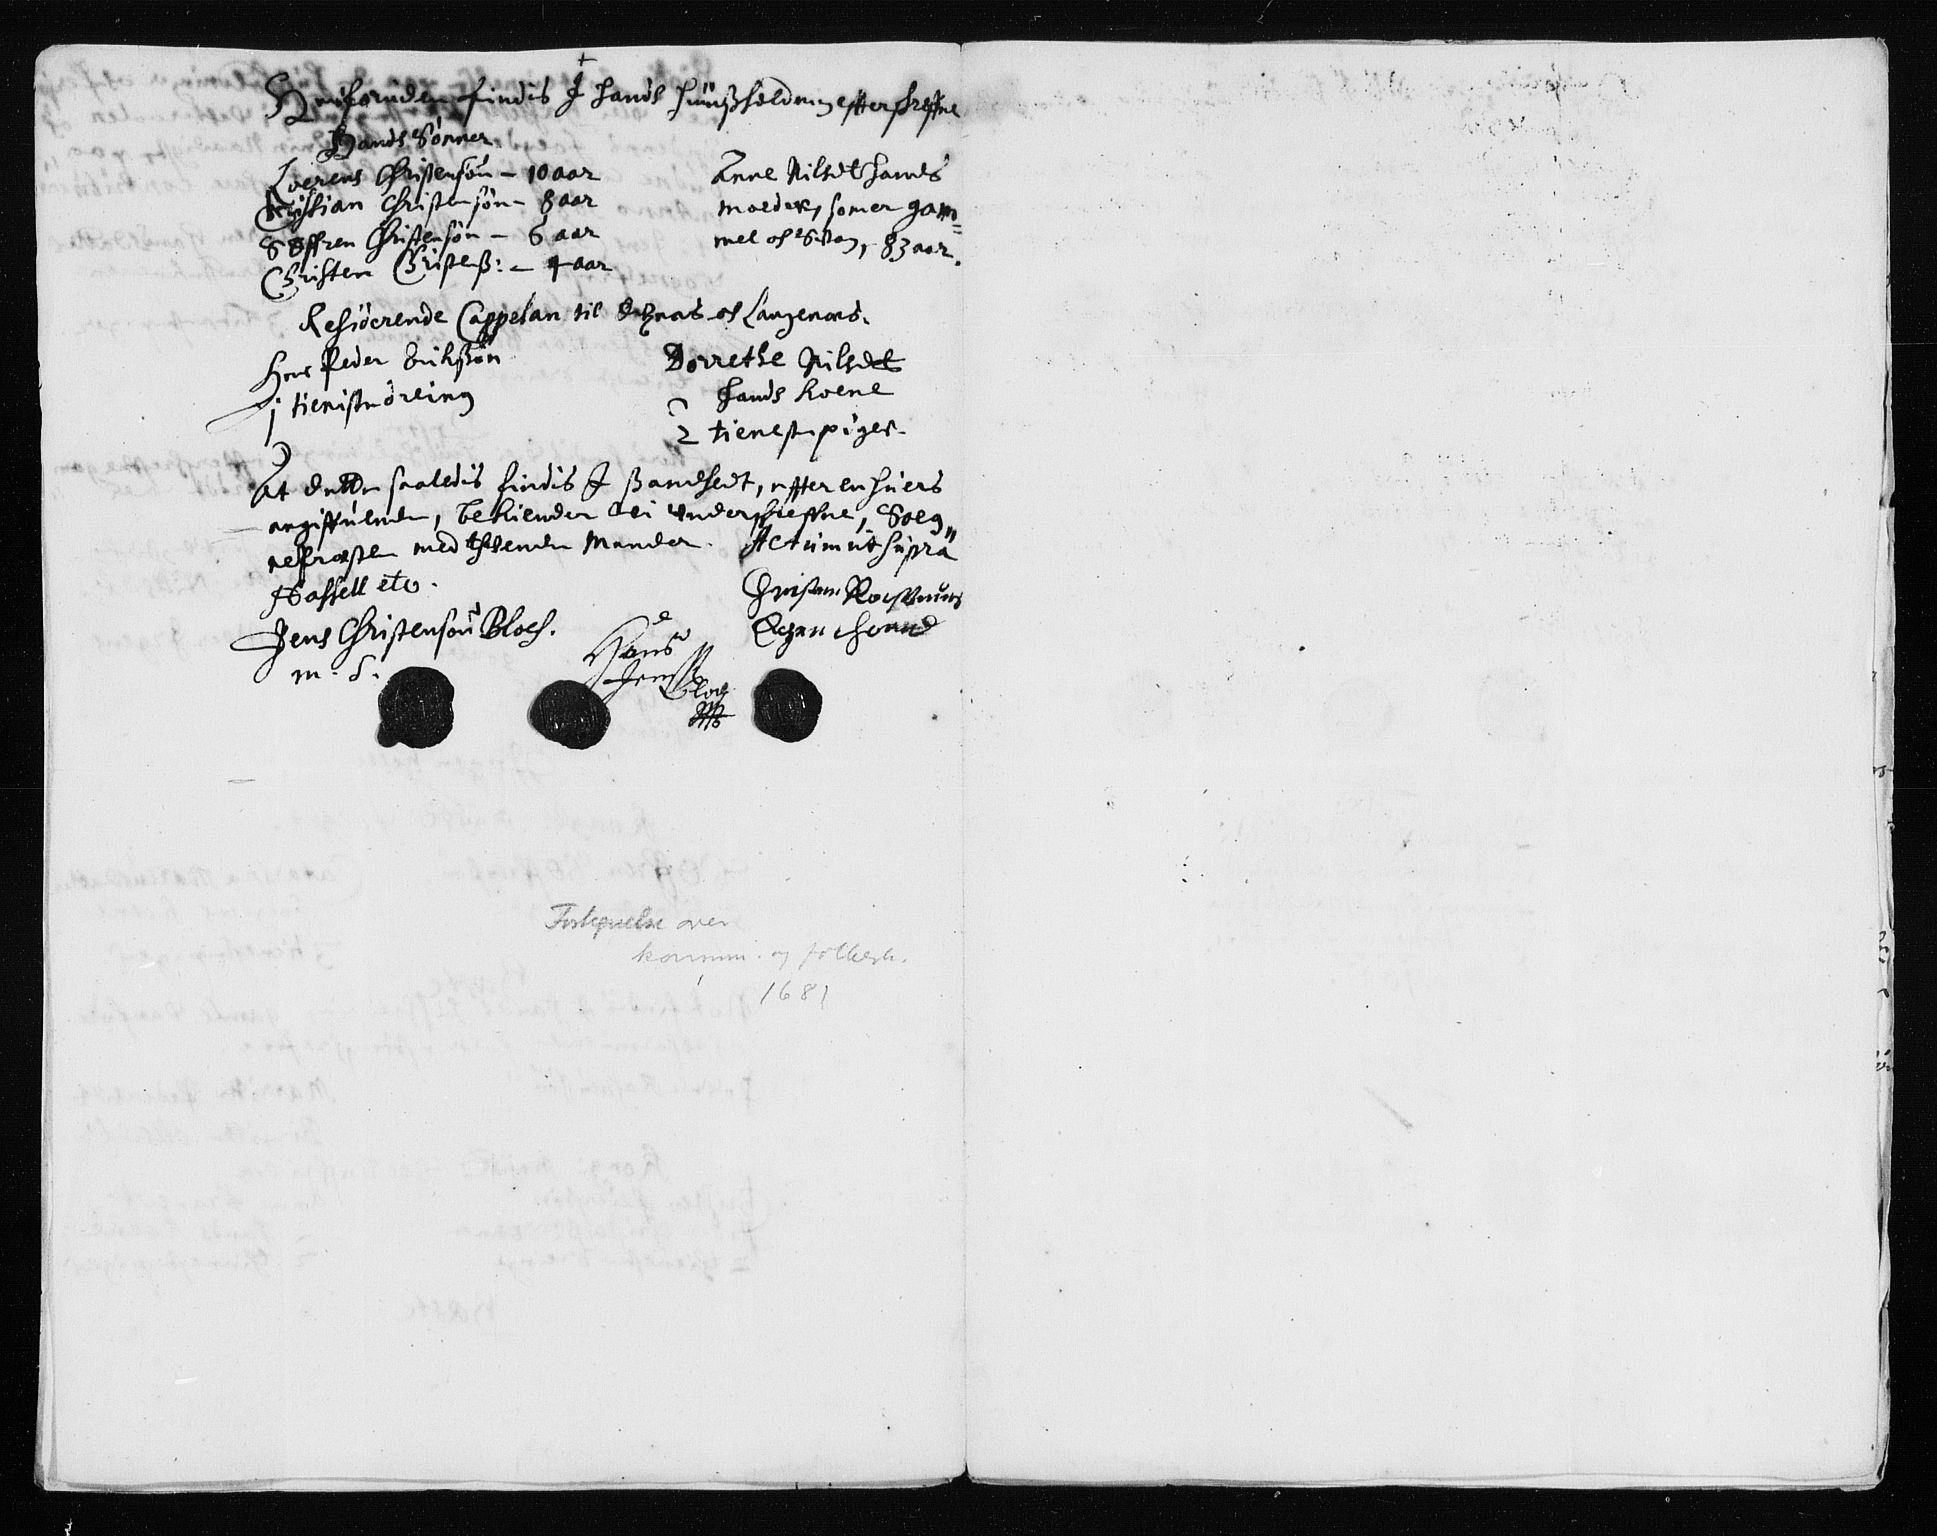 Herforuden findis I hands huußholdning effterskreffne
Hands Sønner
Loerens Christensøn – 10 aar
Kristian Christensøn – 8 aar
Søffren Christensøn – 6 aar
Christen Christenß: – 4 aar
Anne Nilsdt hands
moeder, som er gam=
mel oc 83 aar.
Residerende Cappelan til oc Langenæs.
Her Peder Erikßøn
j tieniste dreing
Dorrethe Nilsdt
hands koene
2 tienestpiger.
At dette saaledis findis I sandhedt, effter en huers
angiffuende, bekiender vi underskreffne, Soeg„
nepræsten med Mænder. Actum ut supra
Hassell etc.
Jens Christensøn Bloch.
m. S.
Hans
Jenß
Bloch
Christen
Egen haand
Fortegnelse over
konsum. og folkesk.
1681